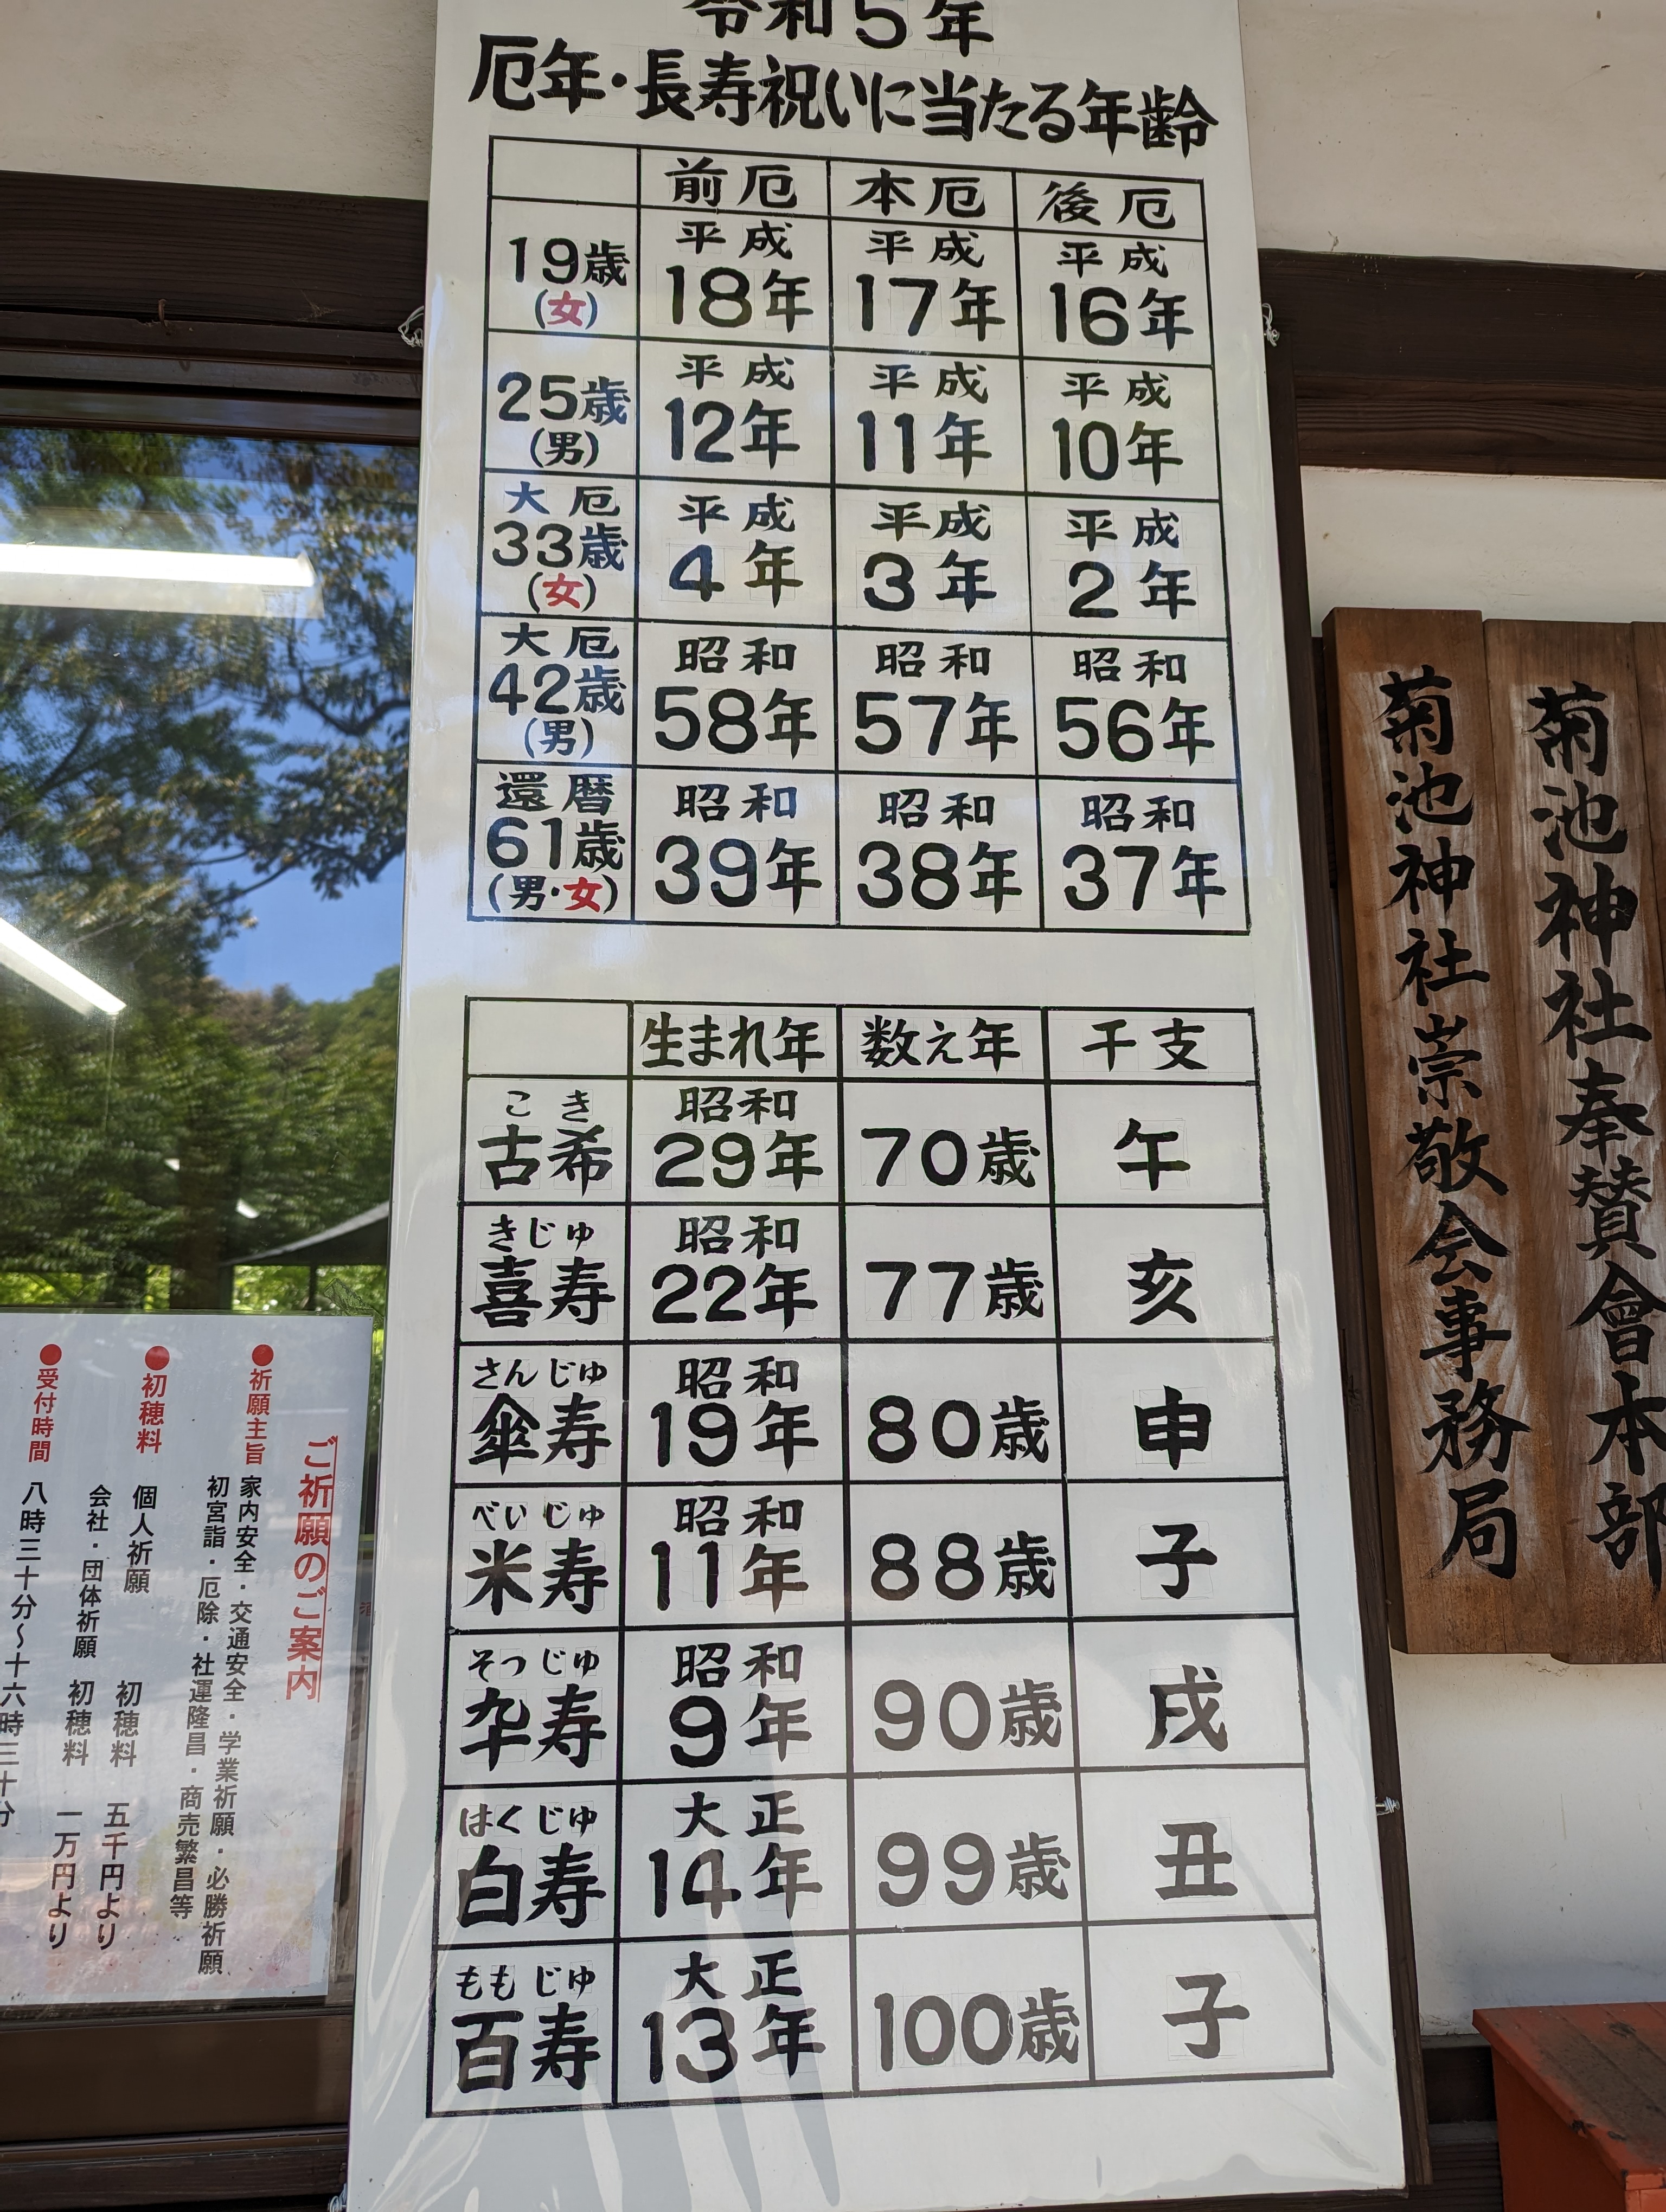 令和5年
厄年・長寿祝いに当たる年齢
前厄 本厄 後厄
19歳(女) 平成18年 平成17年 平成16年
25歳(男) 平成12年 平成11年 平成10年
大厄33歳(女) 平成4年 平成3年 平成2年
大厄42歳(男) 昭和58年 昭和57年 昭和56年
還暦61歳(男・女) 昭和39年 昭和38年 昭和37年
生まれ年 数え年 干支
こき
古希 昭和29年 70歳 午
きじゅ
喜寿 昭和22年 77歳 亥
さんじゅ
傘寿 昭和19年 80歳 申
べいじゅ
米寿 昭和11年 88歳 子
そつじゅ
卒寿 昭和9年 90歳 戌
はくじゅ
白寿 大正14年 99歳 丑
ももじゅ
百寿 大正13年 100歳 子
菊池神社奉賛會本部
菊池神社崇敬会事務局
ご祈願のご案内
●祈願主旨 家内安全・交通安全・学業祈願・必勝祈願
初宮詣・厄除・社運隆昌・商売繁昌等
●初穂料 個人祈願 初穂料 五千円より
会社・団体祈願 初穂料 一万円より
●受付時間 八時三十分〜十六時三十分